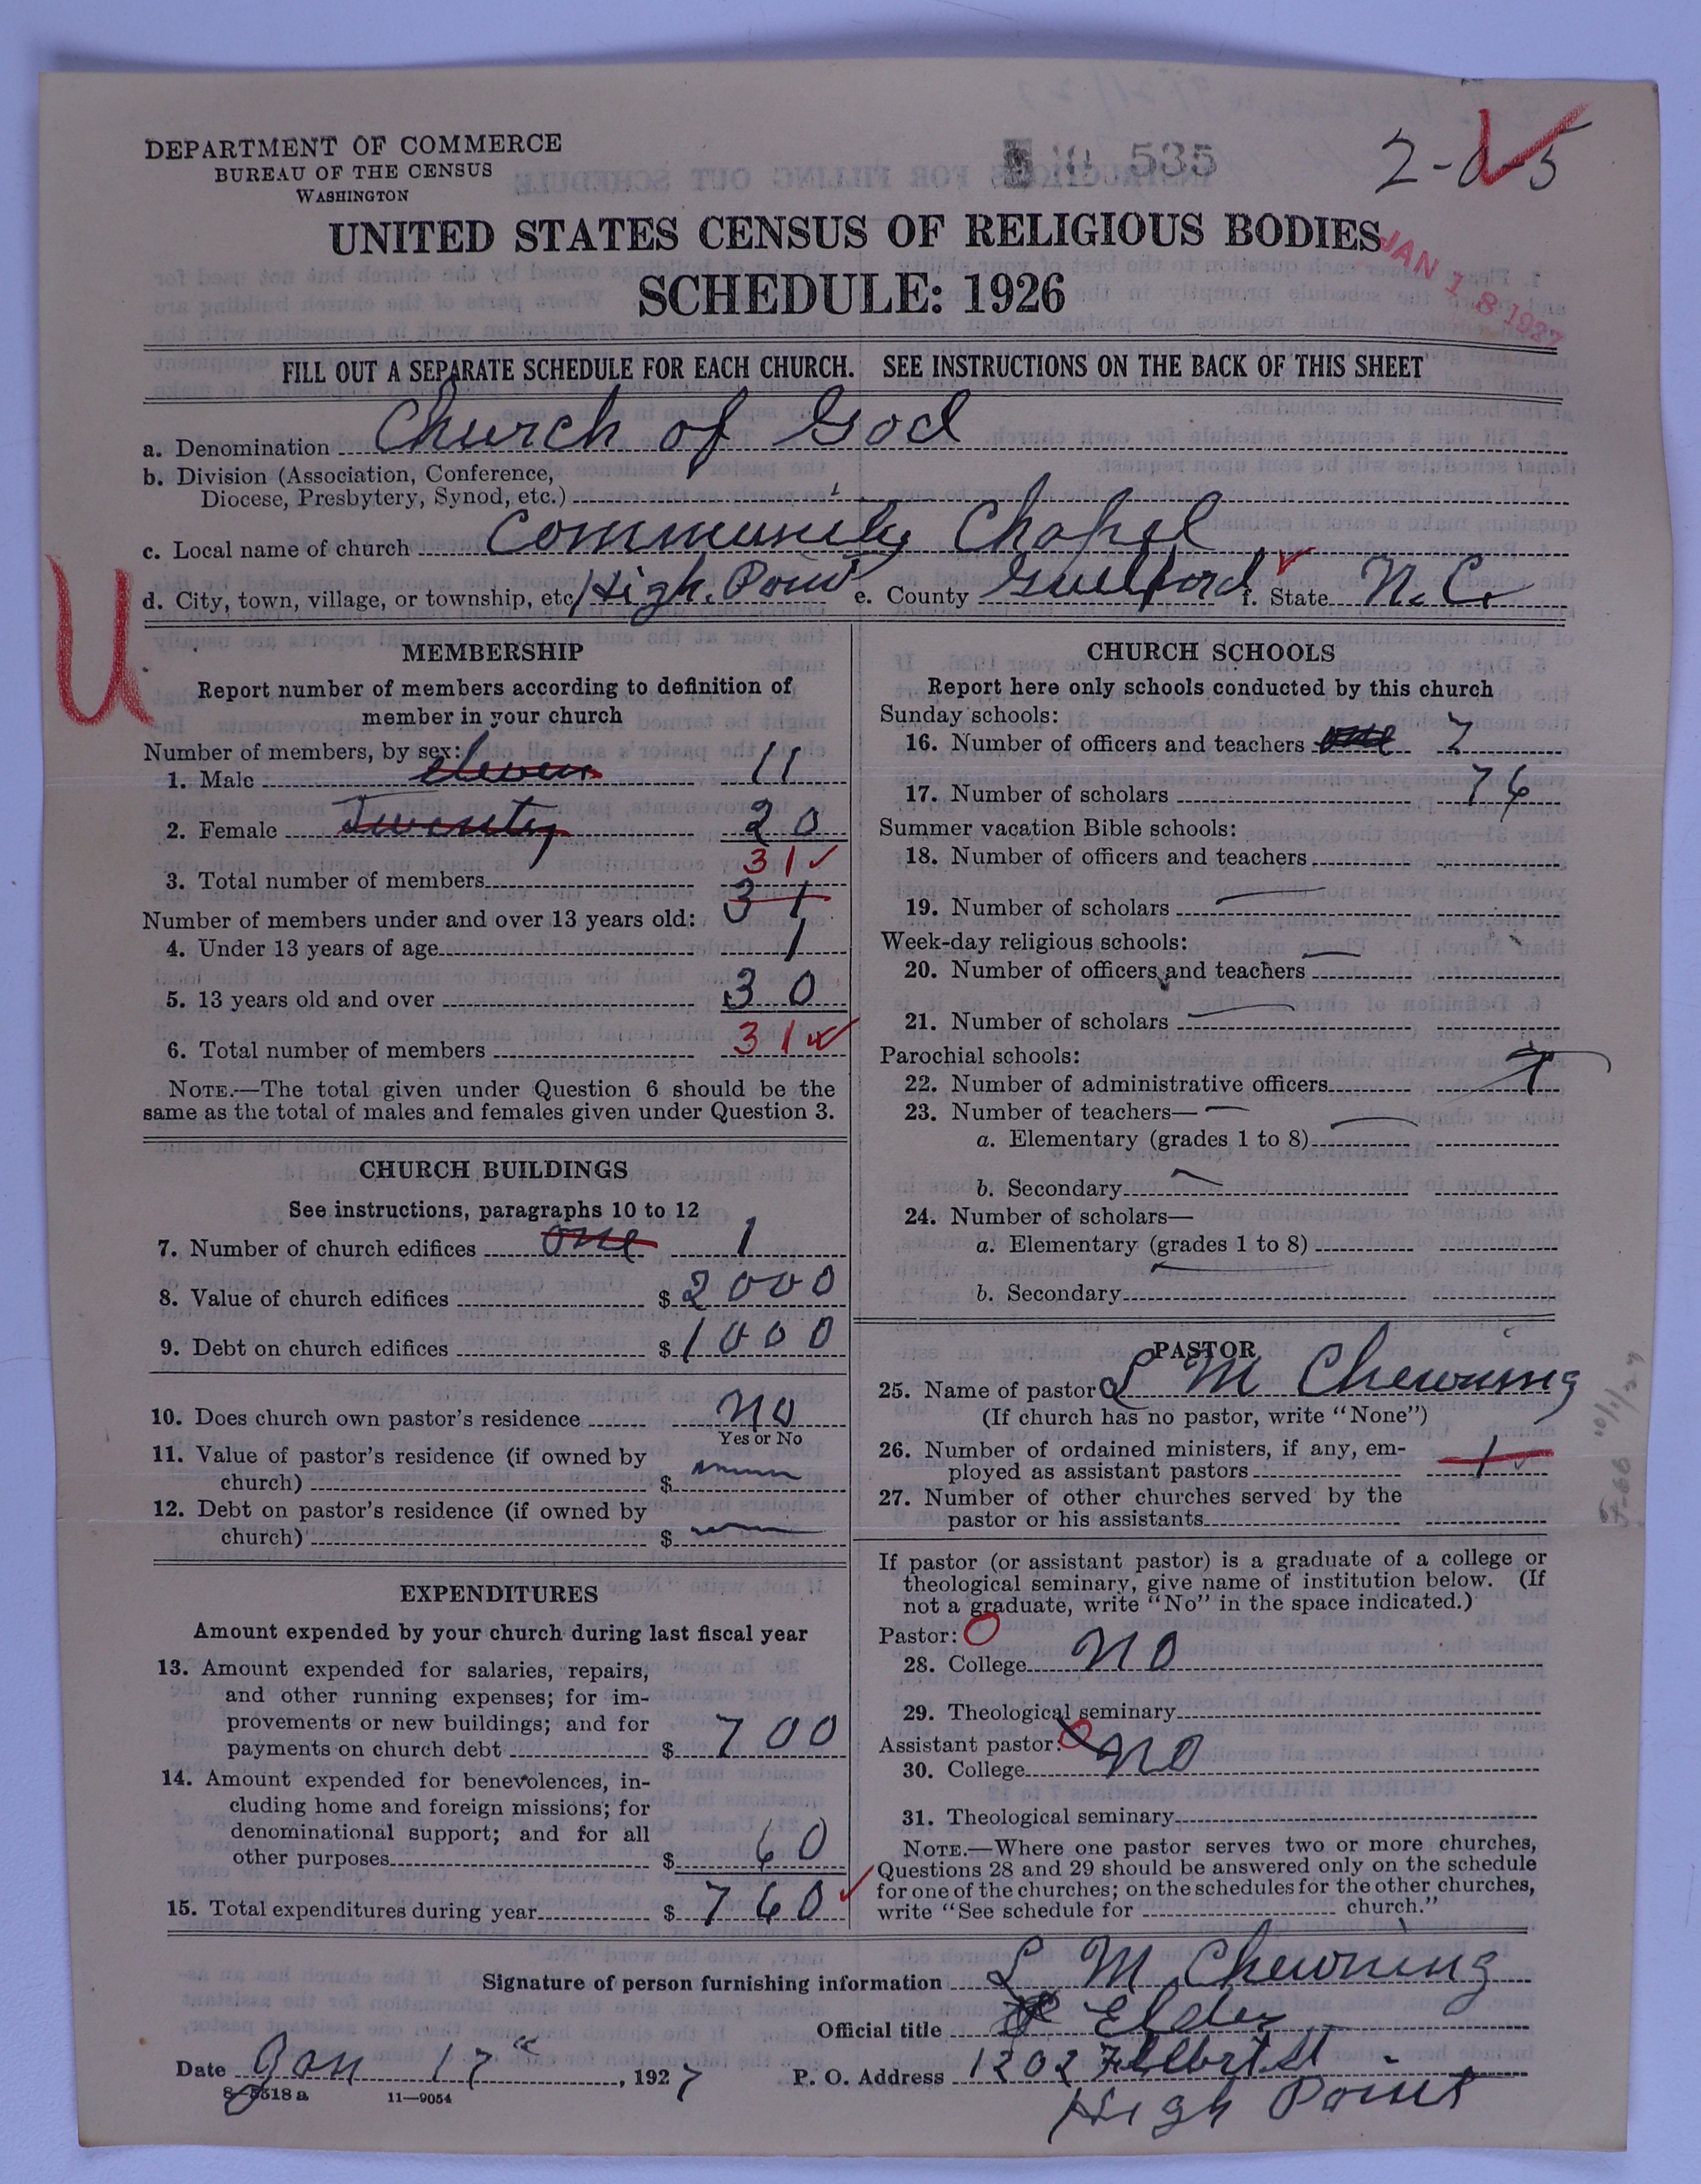 DEPARTMENT OF COMMERCE
BUREAU OF THE CENSUS
WASHINGTON
535
2-0-5
UNITED STATES CENSUS OF RELIGIOUS BODIES
SCHEDULE: 1926
JAN 18 1927
FILL OUT A SEPARATE SCHEDULE FOR EACH CHURCH. SEE INSTRUCTIONS ON THE BACK OF THIS SHEET
a. Denomination Church of God
b. Division (Association, Conference,
Diocese, Presbytery, Synod, etc.)
c. Local name of church Community Chapel
d. City, town, village, or township, etc. High Point e. County Guilford f. State N.C.
U
MEMBERSHIP
Report number of members according to definition of
member in your church
Number of members, by sex:
1. Male eleven 11
2. Female Twenty 20
31
3. Total number of members 31
Number of members under and over 13 years old:
4. Under 13 years of age 1
5. 13 years old and over 30
6. Total number of members 31
NOTE.—The total given under Question 6 should be the
same as the total of males and females given under Question 3.
CHURCH BUILDINGS
See instructions, paragraphs 10 to 12
7. Number of church edifices one 1
8. Value of church edifices $ 2000
9. Debt on church edifices $ 1000
10. Does church own pastor's residence No
Yes or No
11. Value of pastor's residence (if owned by
church) $
12. Debt on pastor's residence (if owned by
church) $
EXPENDITURES
Amount expended by your church during last fiscal year
13. Amount expended for salaries, repairs,
and other running expenses; for im-
provements or new buildings; and for
payments on church debt $ 700
14. Amount expended for benevolences, in-
cluding home and foreign missions; for
denominational support; and for all
other purposes $ 60
15. Total expenditures during year $ 760
CHURCH SCHOOLS
Report here only schools conducted by this church
Sunday schools:
16. Number of officers and teachers one 7
17. Number of scholars 76
Summer vacation Bible schools:
18. Number of officers and teachers
19. Number of scholars
Week-day religious schools:
20. Number of officers and teachers
21. Number of scholars
Parochial schools:
22. Number of administrative officers
23. Number of teachers—
a. Elementary (grades 1 to 8)
b. Secondary
24. Number of scholars—
a. Elementary (grades 1 to 8)
b. Secondary
PASTOR
25. Name of pastor L M Chewning
(If church has no pastor, write "None")
26. Number of ordained ministers, if any, em-
ployed as assistant pastors 1
27. Number of other churches served by the
pastor or his assistants
If pastor (or assistant pastor) is a graduate of a college or
theological seminary, give name of institution below. (If
not a graduate, write "No" in the space indicated.)
Pastor:
28. College No
29. Theological seminary
Assistant pastor:
30. College No
31. Theological seminary
NOTE.—Where one pastor serves two or more churches,
Questions 28 and 29 should be answered only on the schedule
for one of the churches; on the schedules for the other churches,
write "See schedule for church."
Signature of person furnishing information L M Chewning
Official title Elder
Date Jan 17th, 1927 P. O. Address 1202 St
High Point
8-5518 a 11—9054